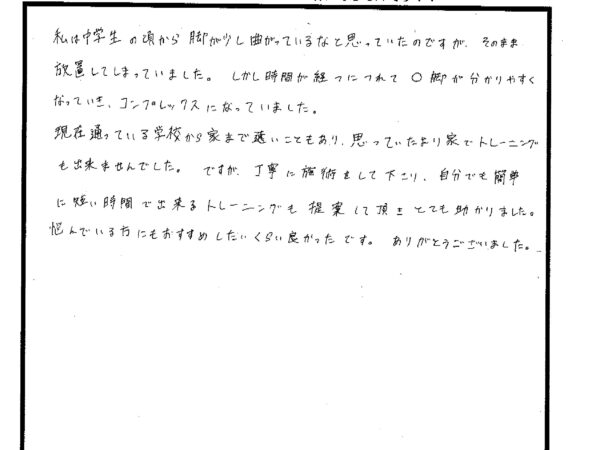 私は中学生の頃から脚が少し曲がっているなと思っていたのですが、そのまま
放置してしまっていました。しかし時間が経つにつれて〇脚が分かりやすく
なっていき、コンプレックスになっていました。
現在通っている学校から家まで遠いこともあり、思っていたより家でトレーニング
も出来ませんでした。ですが、丁寧に施術をして下さり、自分でも簡単
に短い時間で出来るトレーニングも提案して頂きとても助かりました。
悩んでいる方にもおすすめしたいくらい良かったです。ありがとうございました。